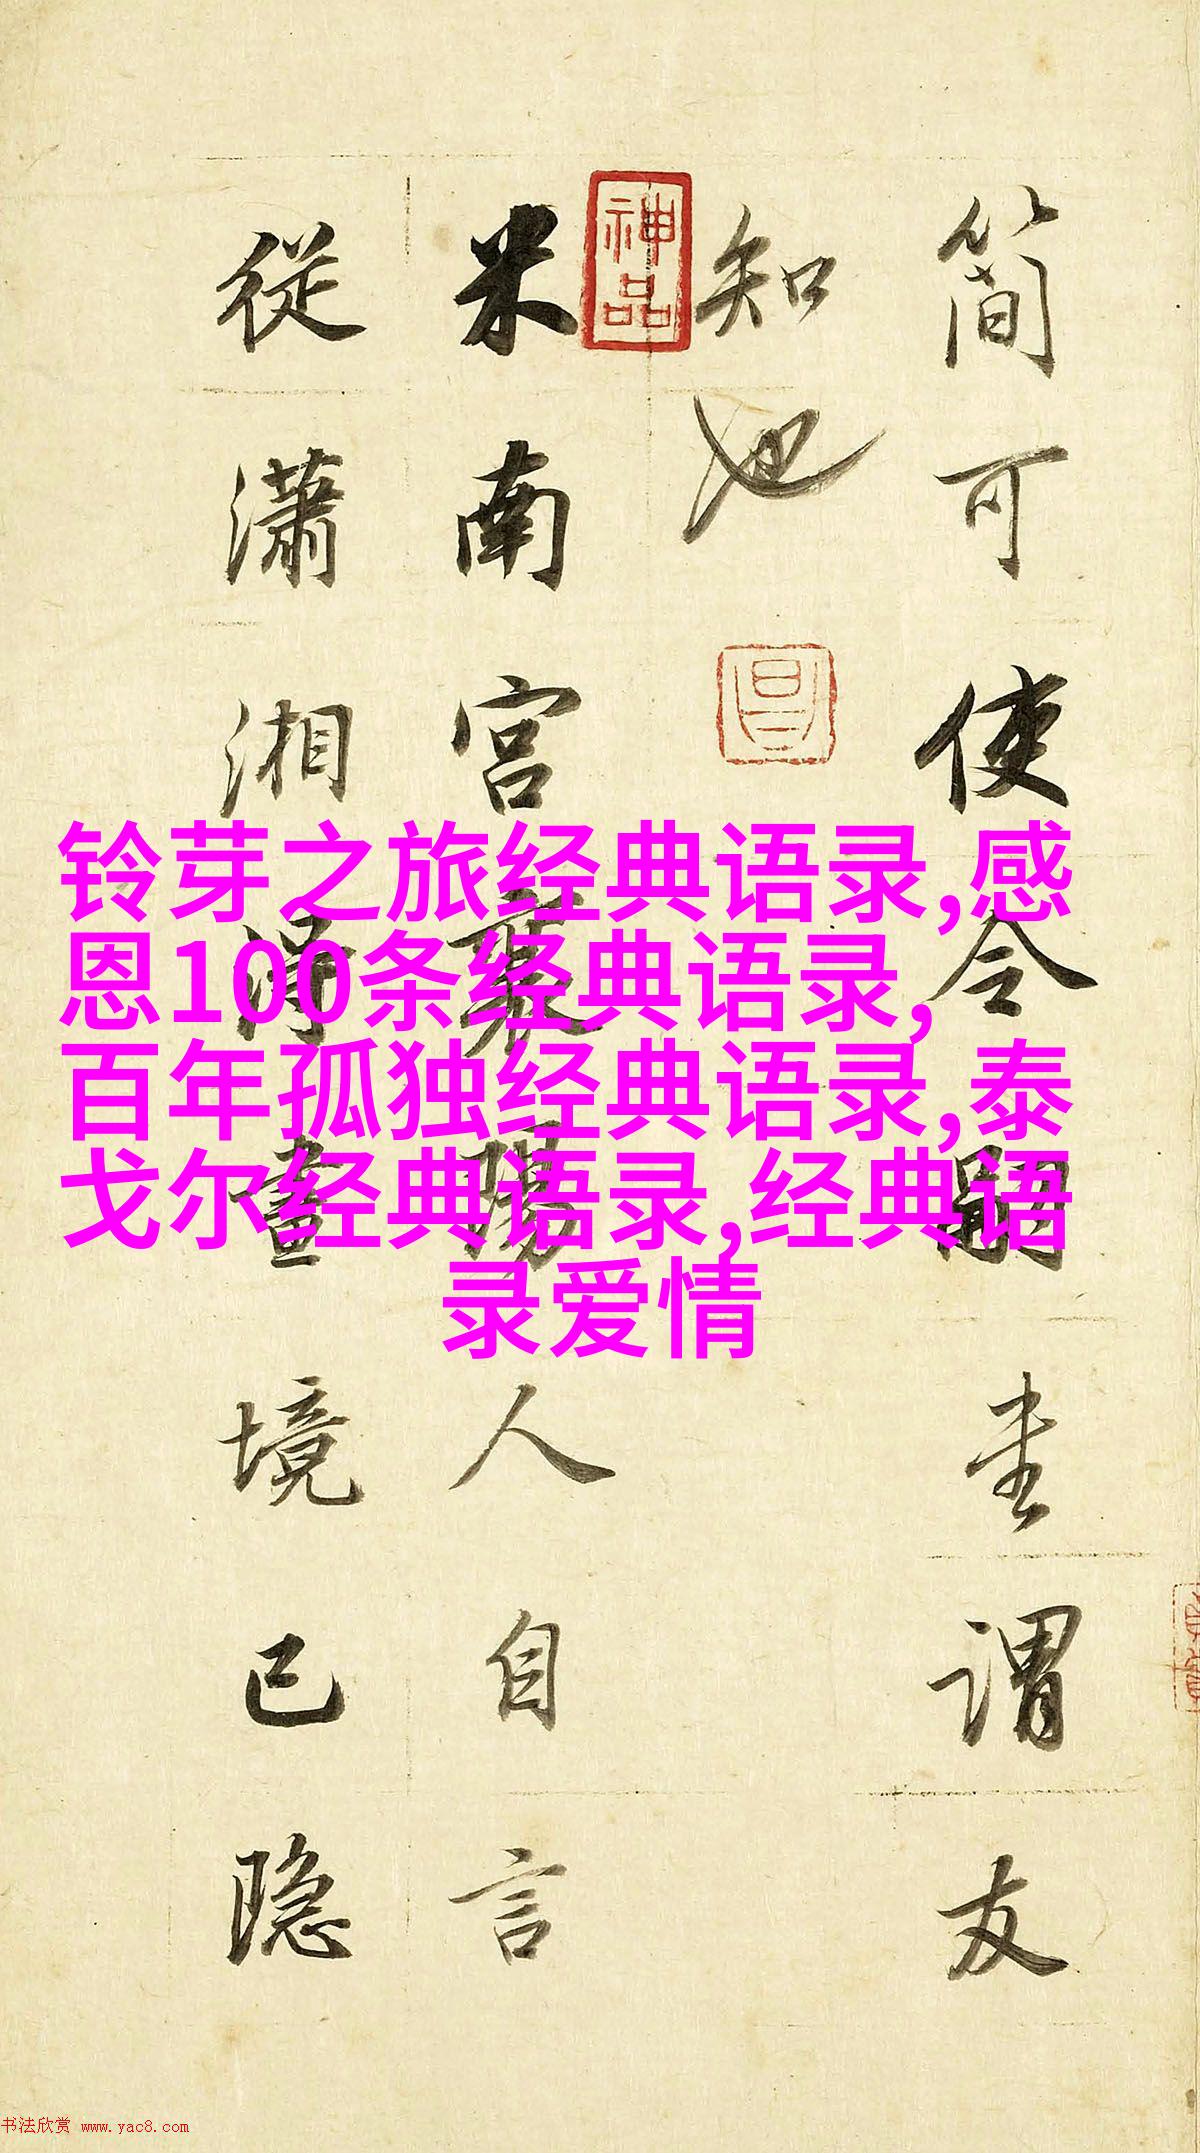 簡可使令嗣謂友
知也
神品
米南宮襄陽人自言
從瀟湘得畫境已隱
铃芽之旅经典语录,感
恩100条经典语录,
百年孤独经典语录,泰
戈尔经典语录,经典语
录爱情
书法欣赏 www.yac8.com